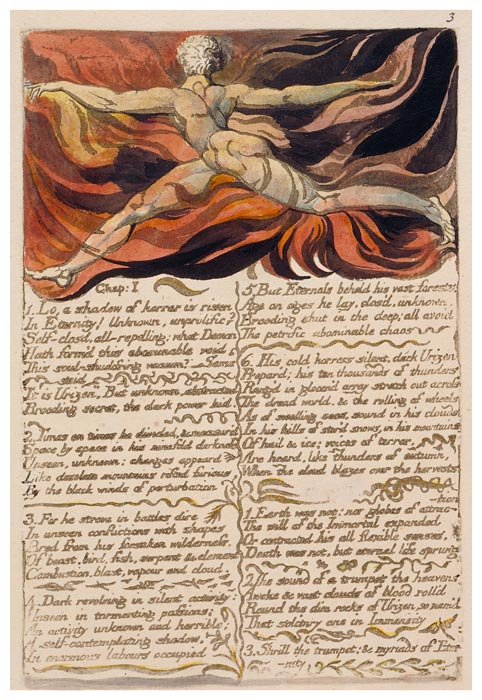 3
Chap: I
1. Lo, a shadow of horror is risen
In Eternity! Unknown, unprolific?
Self-closd, all-repelling: what Demon
Hath form'd this abominable void
This soul-shudd'ring vacuum? Some
said
"It is Urizen", But unknown, abstracted
Brooding secret, the dark power hid.
2. Times on times he divided, & measur'd
Space by space in his ninefold darkness
Unseen, unknown: changes appeard
Like desolate mountains rifted furious
By the black winds of perturbation
3. For he strove in battles dire
In unseen conflictions with shapes
Bred from his forsaken wilderness,
Of beast, bird, fish, serpent & element
Combustion, blast, vapour and cloud.
4. Dark revolving in silent activity:
Unseen in tormenting passions;
An activity unknown and horrible;
A self-contemplating shadow,
In enormous labours occupied
5. But Eternals beheld his vast forests
Age on ages he lay, clos'd, unknown,
Brooding shut in the deep; all avoid
The petrific abominable chaos
6. His cold horrors silent, dark Urizen
Prepar'd; his ten thousands of thunders
Rang'd in gloom'd array stretch out across
The dread world, & the rolling of wheels
As of swelling seas, sound in his clouds
In his hills of stor'd snows, in his mountains
Of hail & ice; voices of terror,
Are heard, like thunders of autumn,
When the cloud blazes over the harvests
1. Earth was not: nor globes of attrac-
-tion
The will of the Immortal expanded
Or contracted his all flexible senses.
Death was not, but eternal life sprung
2. The sound of a trumpet the heavens
Awoke & vast clouds of blood roll'd
Round the dim rocks of Urizen, so nam'd
That solitary one in Immensity
3. Shrill the trumpet: & myriads of Eter-
-nity,